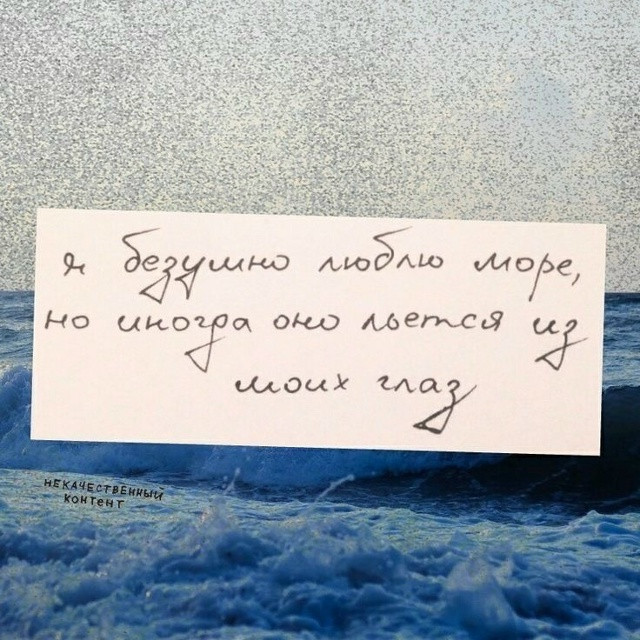 я безумно люблю море,
но иногда оно льется из
моих глаз
НЕКАЧЕСТВЕННЫЙ
КОНТЕНТ